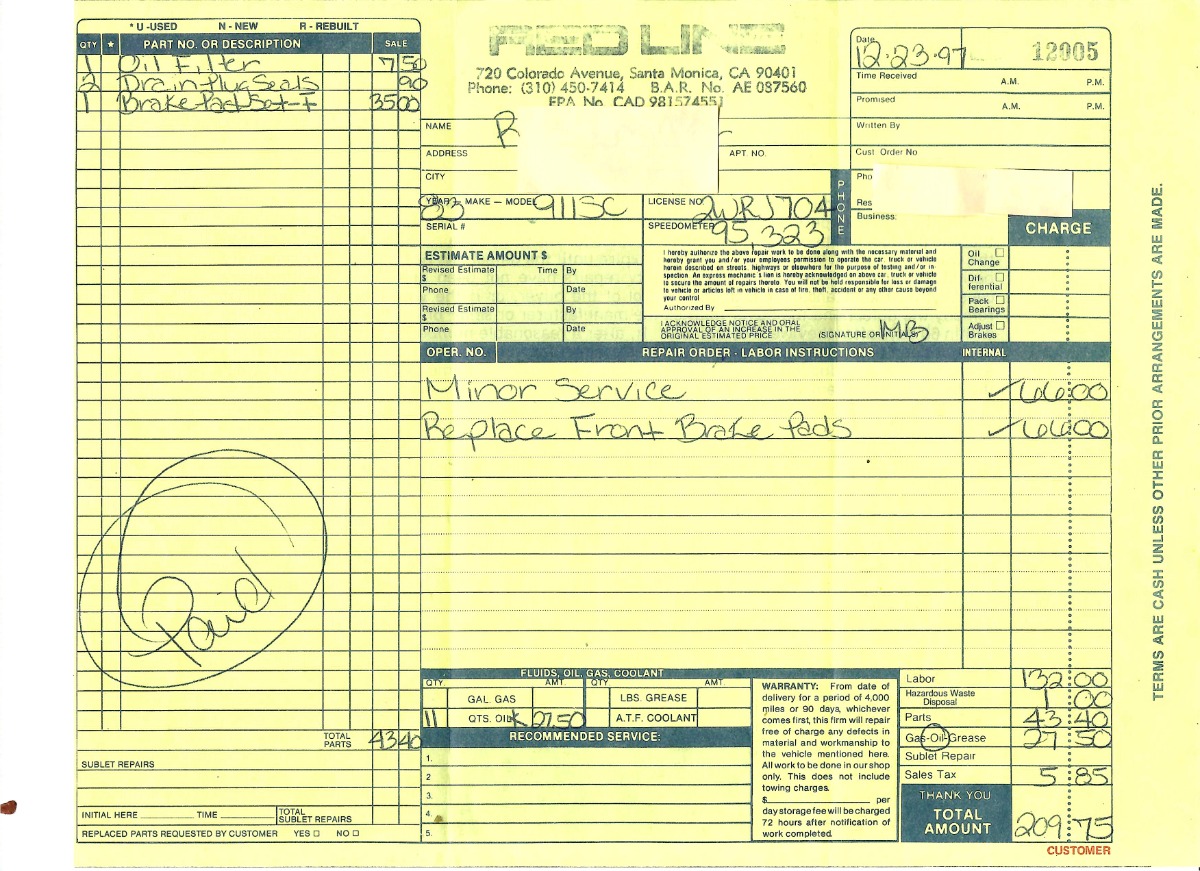 * U-USED N - NEW R - REBUILT
QTY ★ PART NO. OR DESCRIPTION SALE
1 Oil Filter 7 50
2 Drain Plug Seals 90
1 Brake Pad Set-F 35 00
TOTAL PARTS 43 40
SUBLET REPAIRS
INITIAL HERE TIME TOTAL SUBLET REPAIRS
REPLACED PARTS REQUESTED BY CUSTOMER YES □ NO □
Paid
RED LINE
720 Colorado Avenue, Santa Monica, CA 90401
Phone: (310) 450-7414 B.A.R. No. AE 087560
EPA No. CAD 981574551
Date 12-23-97 12005
Time Received A.M. P.M.
Promised A.M. P.M.
Written By
Cust. Order No
Pho
Res
Business:
PHONE
NAME R
ADDRESS APT NO.
CITY
YEAR — MAKE — MODEL 83 911SC LICENSE NO. 2WRJ704
SERIAL # SPEEDOMETER 95,323
CHARGE
ESTIMATE AMOUNT $
Revised Estimate $ Time By
Phone Date
Revised Estimate $ By
Phone Date
I hereby authorize the above repair work to be done along with the necessary material and
hereby grant you and/or your employees permission to operate the car, truck or vehicle
herein described on streets, highways or elsewhere for the purpose of testing and/or in-
spection. An express mechanic's lien is hereby acknowledged on above car, truck or vehicle
to secure the amount of repairs thereto. You will not be held responsible for loss or damage
to vehicle or articles left in vehicle in case of fire, theft, accident or any other cause beyond
your control
Authorized By
I ACKNOWLEDGE NOTICE AND ORAL
APPROVAL OF AN INCREASE IN THE
ORIGINAL ESTIMATED PRICE (SIGNATURE OR INITIALS) MB
Oil Change □
Dif-ferential □
Pack Bearings □
Adjust Brakes □
OPER. NO. REPAIR ORDER - LABOR INSTRUCTIONS INTERNAL
Minor Service ✓ 66 00
Replace Front Brake Pads ✓ 66 00
FLUIDS, OIL, GAS, COOLANT
QTY. AMT. QTY. AMT.
GAL. GAS LBS. GREASE
11 QTS. OIL K 27.50 A.T.F. COOLANT
RECOMMENDED SERVICE:
1.
2
3.
4.
5.
WARRANTY: From date of
delivery for a period of 4,000
miles or 90 days, whichever
comes first, this firm will repair
free of charge any defects in
material and workmanship to
the vehicle mentioned here.
All work to be done in our shop
only. This does not include
towing charges.
$ per
day storage fee will be charged
72 hours after notification of
work completed.
Labor 132 00
Hazardous Waste Disposal 1 00
Parts 43 40
Gas-Oil-Grease 27 50
Sublet Repair
Sales Tax 5 85
THANK YOU
TOTAL AMOUNT 209 75
CUSTOMER
TERMS ARE CASH UNLESS OTHER PRIOR ARRANGEMENTS ARE MADE.